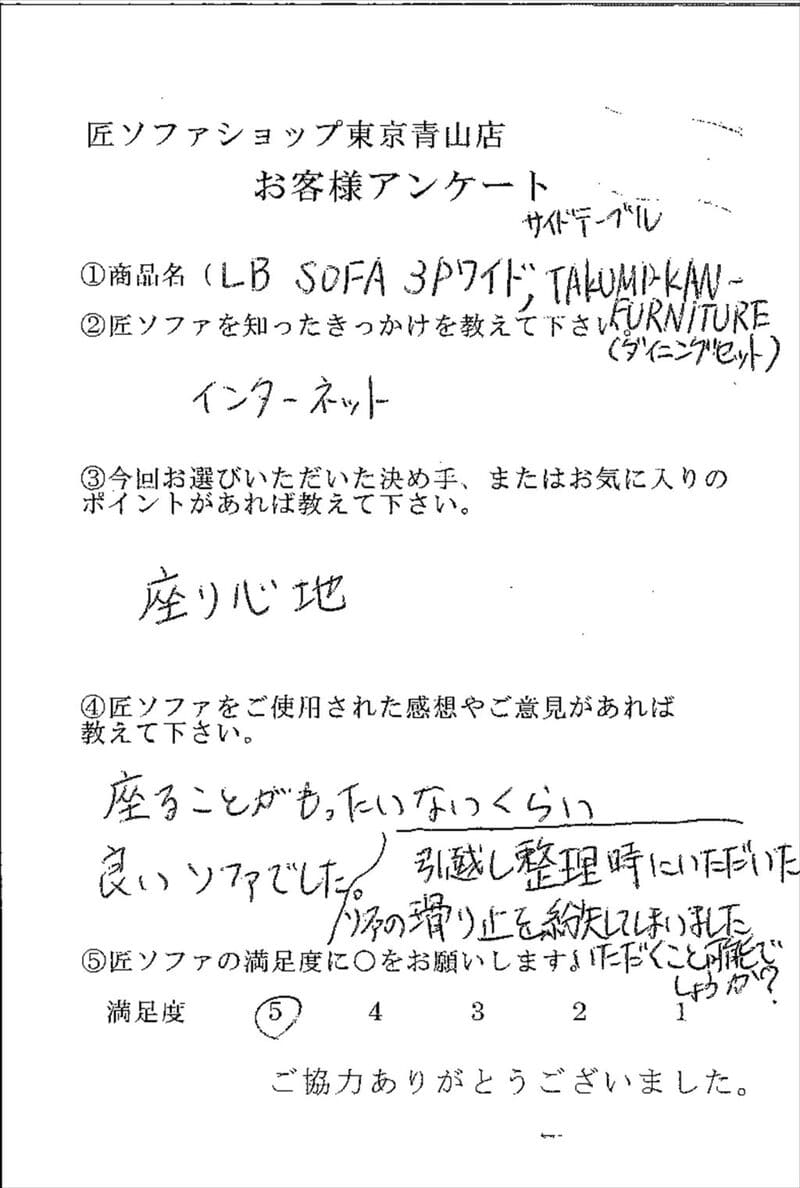 匠ソファショップ東京青山店
お客様アンケート
サイドテーブル
①商品名（LB SOFA 3Pワイド, TAKUMI-KAN-
②匠ソファを知ったきっかけを教えて下さい。
FURNITURE
(ダイニングセット)
インターネット
③今回お選びいただいた決め手、またはお気に入りの
ポイントがあれば教えて下さい。
座り心地
④匠ソファをご使用された感想やご意見があれば
教えて下さい。
座ることがもったいないくらい
良いソファでした。
引越し整理時にいただいた
ソファの滑り止を紛失してしまいました
⑤匠ソファの満足度に〇をお願いします。
いただくこと可能で
しょうか?
満足度 5 4 3 2 1
ご協力ありがとうございました。